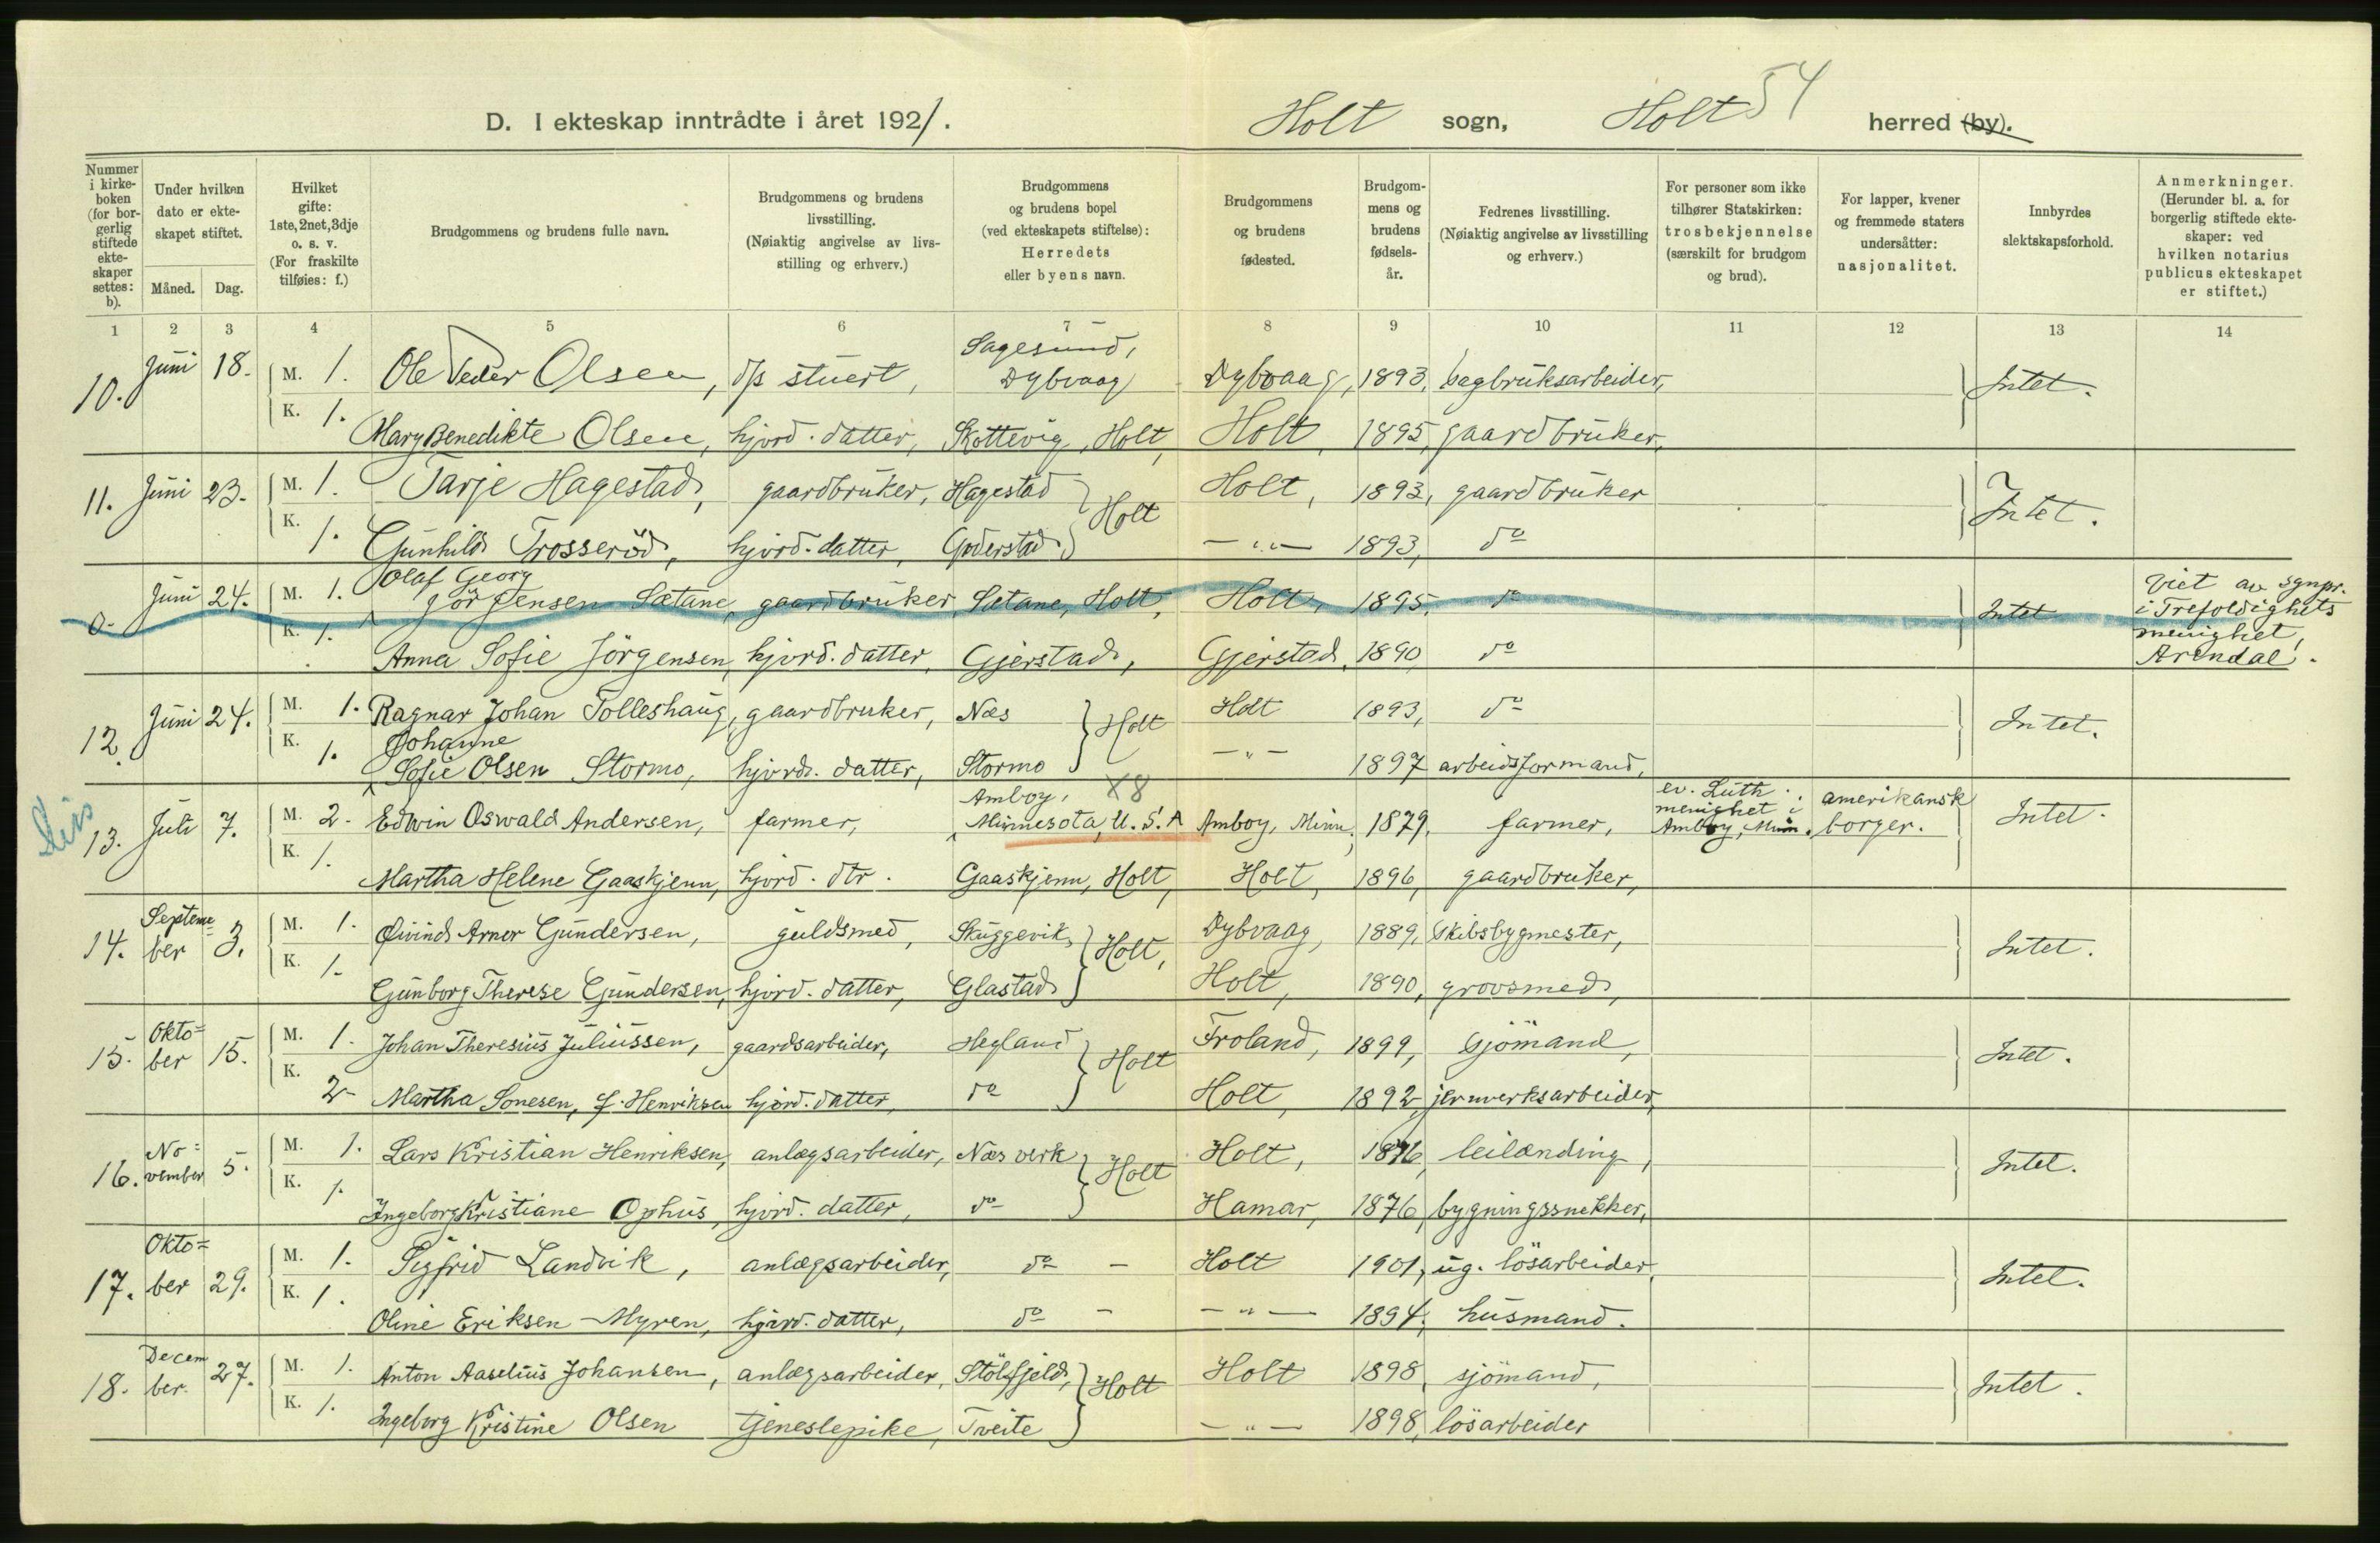 D. I ekteskap inntrådte i året 1921. Holt sogn, Holt 54 herred (by).
Nummer i kirke-boken (for bor-gerlig stiftede ekte-skaper settes: b).
Under hvilken dato er ekte-skapet stiftet.
Måned. Dag.
Hvilket gifte: 1ste, 2net, 3dje o. s. v. (For fraskilte tilføies: f.)
Brudgommens og brudens fulle navn.
Brudgommens og brudens livsstilling. (Nøiaktig angivelse av livs-stilling og erhverv.)
Brudgommens og brudens bopel (ved ekteskapets stiftelse): Herredets eller byens navn.
Brudgommens og brudens fødested.
Brudgom-mens og brudens fødsels-år.
Fedrenes livsstilling. (Nøiaktig angivelse av livsstilling og erhverv.)
For personer som ikke tilhører Statskirken: trosbekjennelse (særskilt for brudgom og brud).
For lapper, kvener og fremmede staters undersåtter: nasjonalitet.
Innbyrdes slektskapsforhold.
Anmerkninger. (Herunder bl. a. for borgerlig stiftede ekte-skaper: ved hvilken notarius publicus ekteskapet er stiftet.)
1 2 3 4 5 6 7 8 9 10 11 12 13 14
10. Juni 18. M. 1. Ole Peder Olsen, d/s stuert, Sagesund, Dybvaag Dybvaag, 1893, sagbruksarbeider, Intet.
K. 1. Mary Benedikte Olsen, hjvrd. datter, Skottevig, Holt, Holt, 1895, gaardbruker,
11. Juni 23. M. 1. Tarje Hagestad, gaardbruker, Hagestad } Holt Holt, 1893, gaardbruker Intet.
K. 1. Gunhild Trosseröd, hjvrd. datter, Goderstad — " — 1893, do
0. Juni 24. M. 1. Olaf Georg Jörgensen Sætane, gaardbruker, Sætane, Holt, Holt, 1895, do Intet Viet av sgnpr. i Trefoldighets menighet, Arendal.
K. 1. Anna Sofie Jörgensen, hjvrd. datter, Gjerstad, Gjerstad, 1890, do
12. Juni 24. M. 1. Ragnar Johan Tolleshaug, gaardbruker, Næs } Holt Holt 1893, do Intet.
K. 1. Johanne Sofie Olsen Stormo, hjvrd. datter, Stormo — " — 1897 arbeidsformand,
13. Juli 7. M. 2. Edwin Oswald Andersen, farmer, Amboy, X8 Minnesota, U.S.A Amboy, Minn. 1879, farmer, ev. Luth. menighet i Amboy, Minn. amerikansk borger. Intet.
K. 1. Martha Helene Gaaskjenn, hjvrd. dtr. Gaaskjenn, Holt, Holt, 1896, gaardbruker,
14. Septem=ber 3. M. 1. Øivind Arner Gundersen, guldsmed, Skuggevik, } Holt, Dybvaag, 1889, skibsbygmester, Intet.
K. 1. Gunborg Therese Gundersen, hjvrd. datter, Glastad Holt, 1890, grovsmed,
15. Okto=ber 15. M. 1. Johan Theresius Juliussen, gaardsarbeider, Hegland } Holt Froland, 1899, sjömand, Intet.
K. 2 Martha Sonesen, f. Henriksen hjvrd. datter, do Holt, 1892, jernverksarbeider,
16. No=vember 5. M. 1. Lars Kristian Henriksen, anlægsarbeider, Næs verk } Holt Holt, 1876, leilænding, Intet.
K. 1. Ingeborg Kristiane Ophus, hjvrd. datter, do Hamar, 1876, bygningssnekker,
17. Okto=ber 29. M. 1. Sigfrid Landvik, anlægsarbeider, do — Holt 1901, ug. lösarbeider, Intet.
K. 1. Oline Eriksen Myren, hjvrd. datter, do — — " — 1894, husmand.
18. Decem ber. 27. M. 1. Anton Aaselius Johansen, anlægsarbeider, Stölsfjeld, } Holt Holt 1898, sjömand, Intet.
K. 1. Ingeborg Kristine Olsen tjenestepike, Tveite — " — 1898, lösarbeider